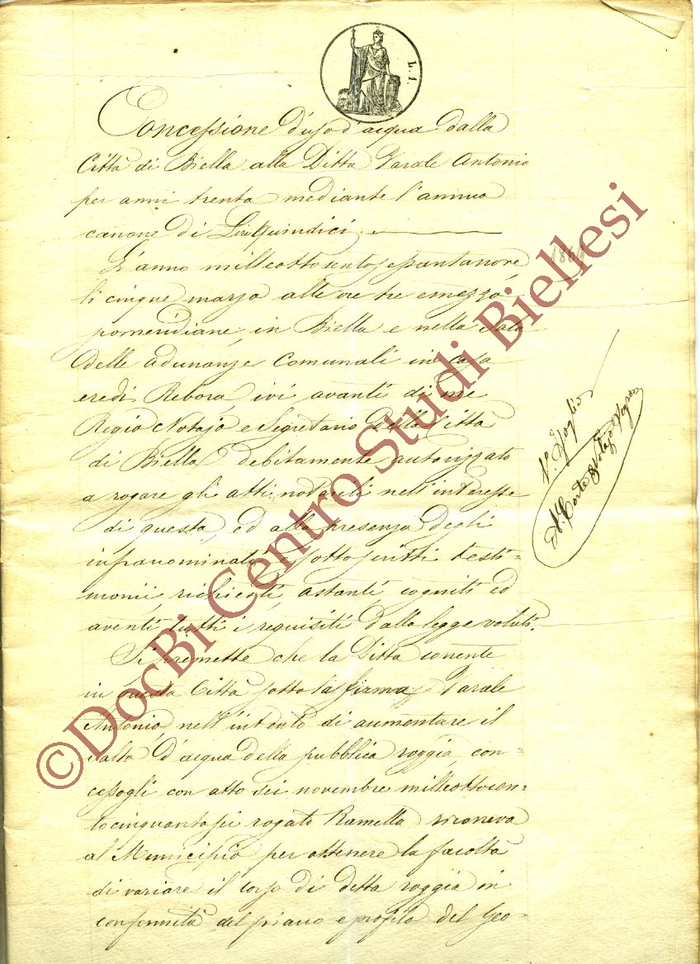 L. 1.
Concessione d'uso d'acqua dalla
Città di Biella alla Ditta Varale Antonio
per anni trenta mediante l'annuo
canone di Lire Quindici.
L'anno milleottocentosessantanove
li cinque marzo alle ore tre e mezzo
pomeridiane, in Biella e nella Sala
delle adunanze Comunali in casa
eredi Rebora, ivi avanti di me
Regio Notajo e Segretario della Città
di Biella debitamente autorizzato
a rogare gli atti notarili nell'interesse
di questa, ed alla presenza degli
infranominati e sottoscritti testi-
monii richiesti, astanti, cogniti ed
aventi tutti i requisiti dalla legge voluti.
Si premette che la Ditta corrente
in questa Città sotto la firma Varale
Antonio, nell'intento di aumentare il
salto d'acqua della pubblica roggia, con-
cessogli con atto sei novembre milleottocen-
tocinquantasei rogato Ramella ricorreva
al Municipio per ottenere la facoltà
di variare il corso di detta roggia in
conformità del piano e profilo del Geo-
1869
©DocBi Centro Studi Biellesi